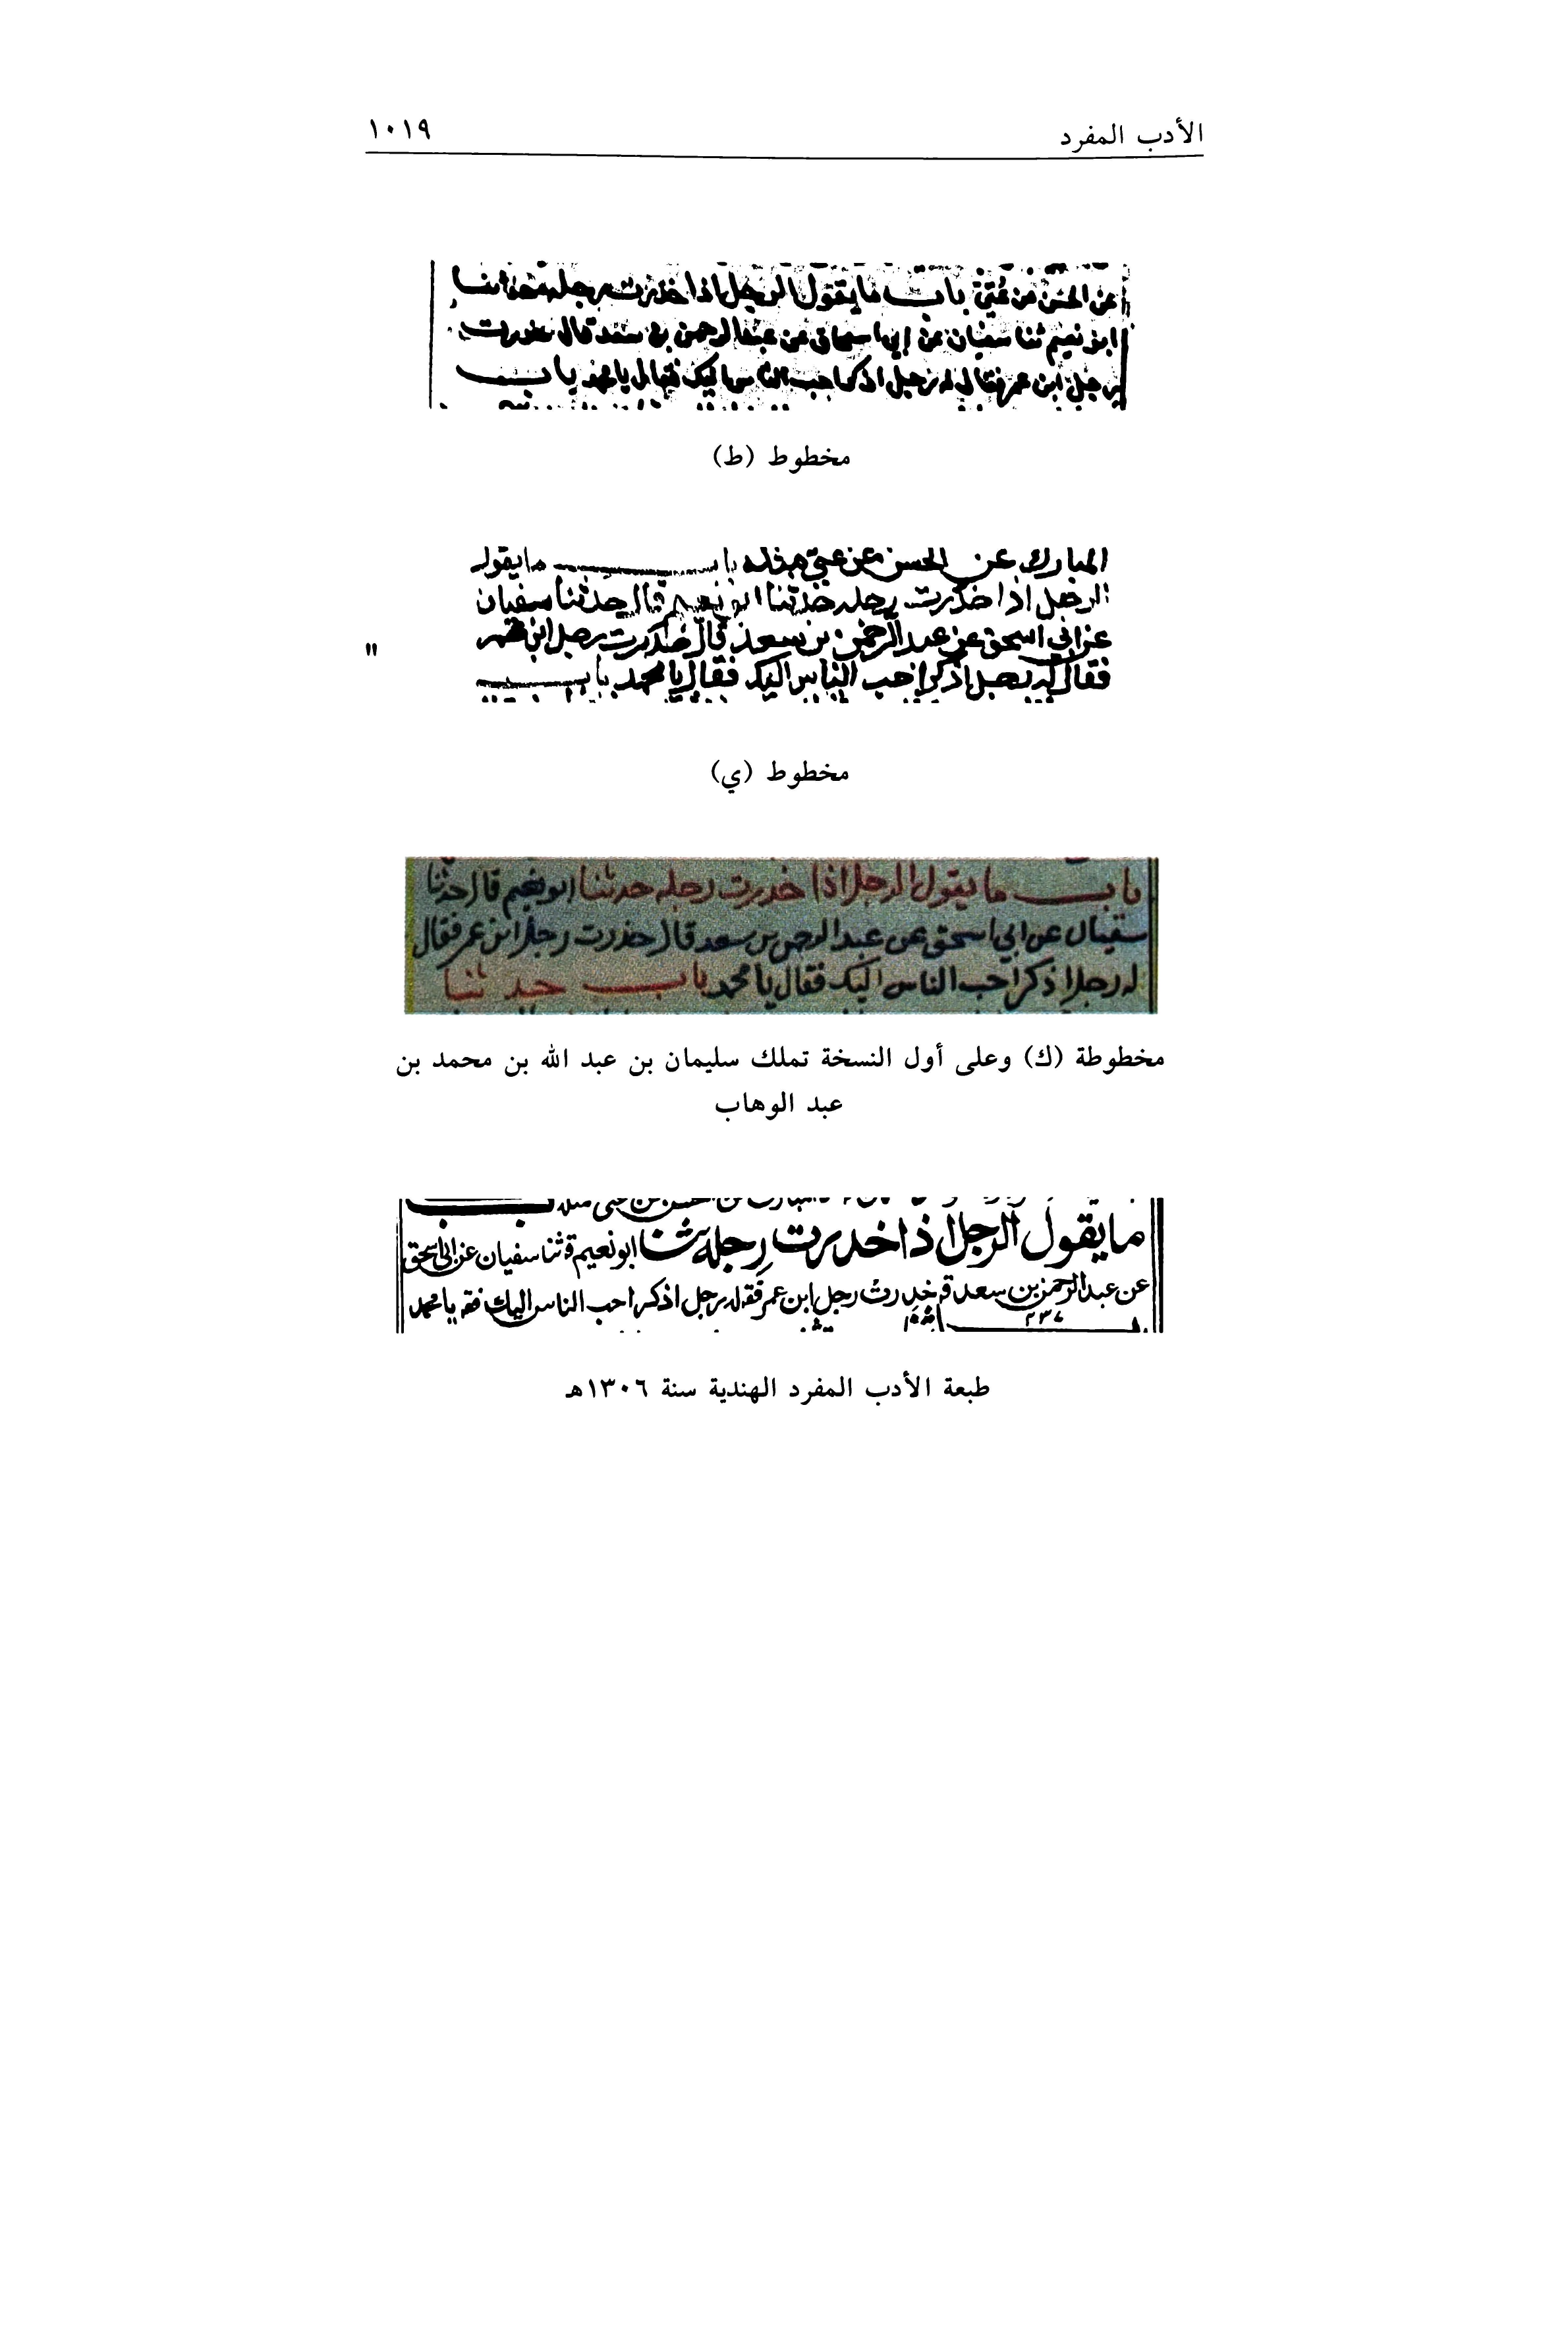 الأدب المفرد ١٠١٩
عن الحسن عن عُتيّ باب ما يقول الرجل اذا خدرت رجله حدثنا
ابو نعيم ثنا سفيان عن ابي اسحاق عن عبد الرحمن بن سعد قال خدرت
رجل ابن عمر فقال له رجل اذكر احب الناس اليك فقال يا محمد باب
مخطوط (ط)
المبارك عن الحسن عن عتي مثله باب ما يقول
الرجل اذا خدرت رجله حدثنا ابو نعيم قال حدثنا سفيان
عن ابي اسحق عن عبد الرحمن بن سعد قال خدرت رجل ابن عمر
فقال له رجل اذكر احب الناس اليك فقال يا محمد باب
مخطوط (ي)
باب ما يقول الرجل اذا خدرت رجله حدثنا ابو نعيم قال حدثنا
سفيان عن ابي اسحق عن عبد الرحمن بن سعد قال خدرت رجل ابن عمر فقال
له رجل اذكر احب الناس اليك فقال يا محمد باب حدثنا
مخطوطة (ك) وعلى أول النسخة تملك سليمان بن عبد الله بن محمد بن
عبد الوهاب
ما يقول الرجل اذا خدرت رجله ثنا ابو نعيم قة ثنا سفيان عن ابي اسحق
عن عبد الرحمن بن سعد قة خدرت رجل ابن عمر فقه له رجل اذكر احب الناس اليك فقه يا محمد
٢٣٧
طبعة الأدب المفرد الهندية سنة ١٣٠٦هـ